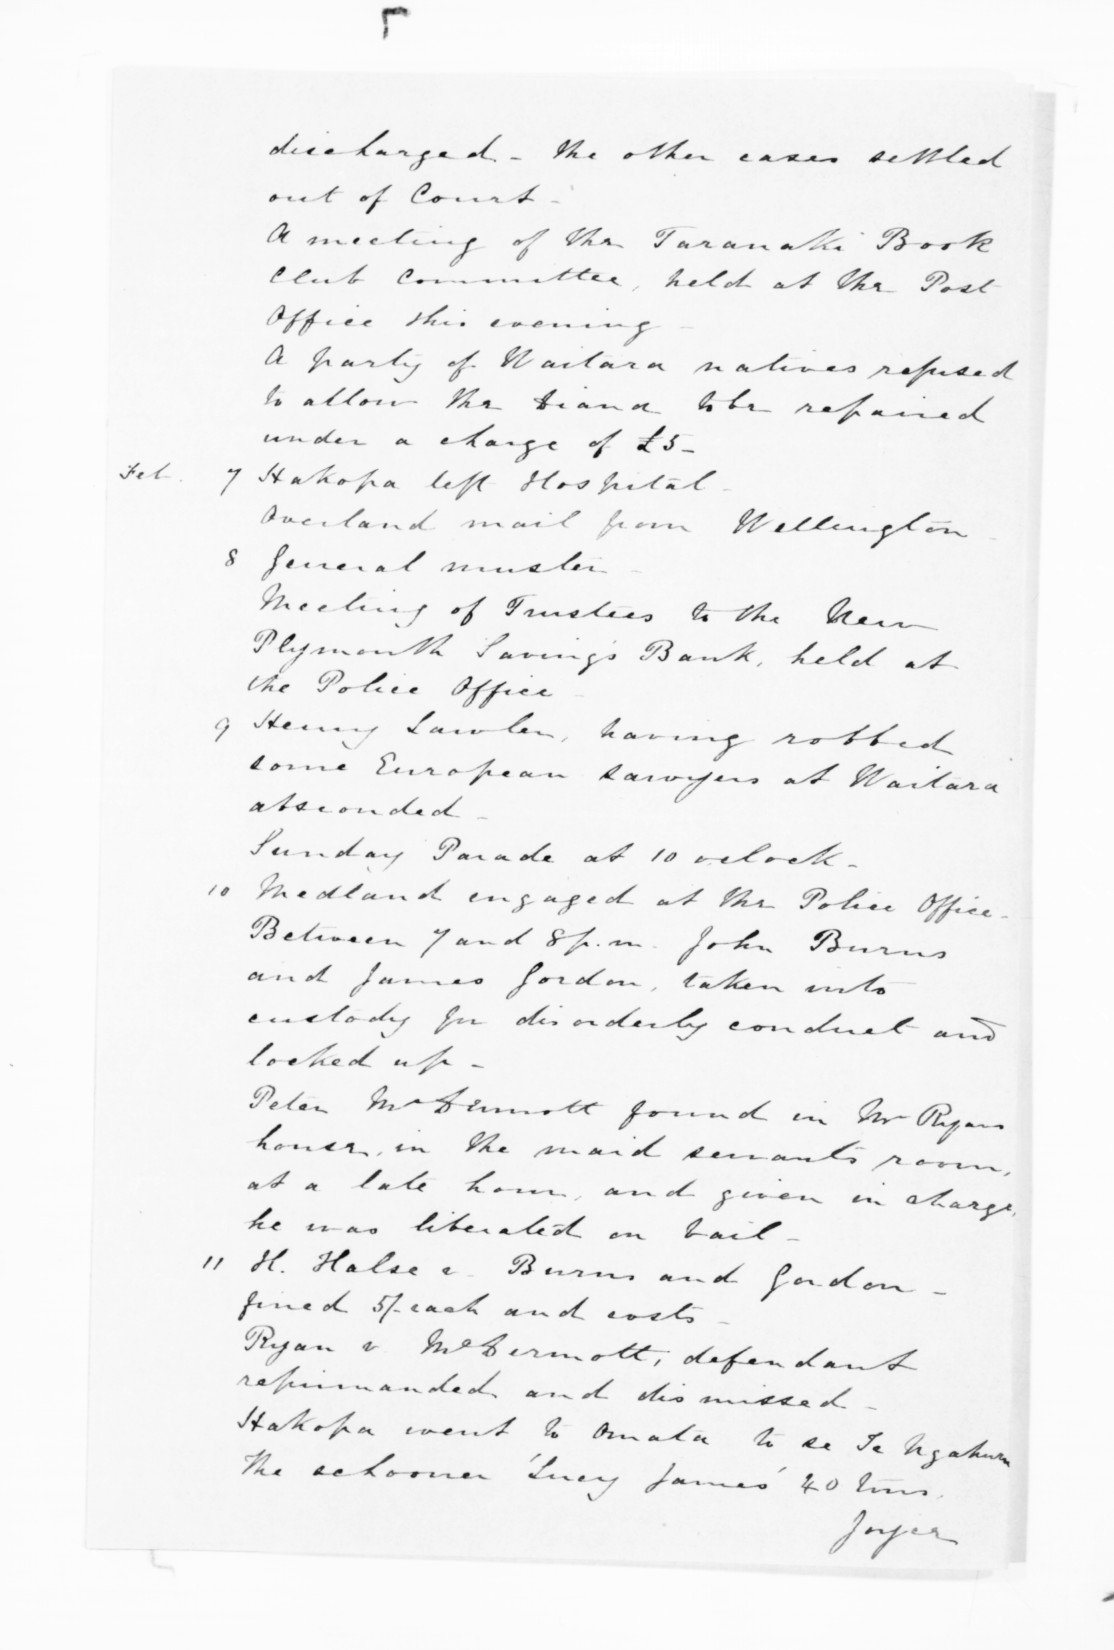 discharged - the other cases settled
out of Court -
A meeting of the Taranaki Book
Club Committee, held at the Post
Office this evening -
A party of Waitara natives refused
to allow the Diana to be repaired
under a charge of £5 -
Feb. 7 Hakopa left Hospital -
Overland mail from Wellington -
8 General muster -
Meeting of Trustees to the New
Plymouth Savings Bank, held at
the Police Office -
9 Henry Lawler, having robbed
some European sawyers at Waitara
absconded -
Sunday Parade at 10 oclock -
10 Medland engaged at the Police Office -
Between 7 and 8 p.m. John Burns
and James Gordon, taken into
custody for disorderly conduct and
locked up -
Peter McDermott found in Mr Ryans
house, in the maid servants room,
at a late hour, and given in charge,
he was liberated on bail -
11 H. Halse v. Burns and Gordon -
fined 5/- each and costs -
Ryan v McDermott, defendant
reprimanded and dismissed -
Hakopa went to Omata to se Te Ngahuru
The schooner 'Lucy James' 40 tons.